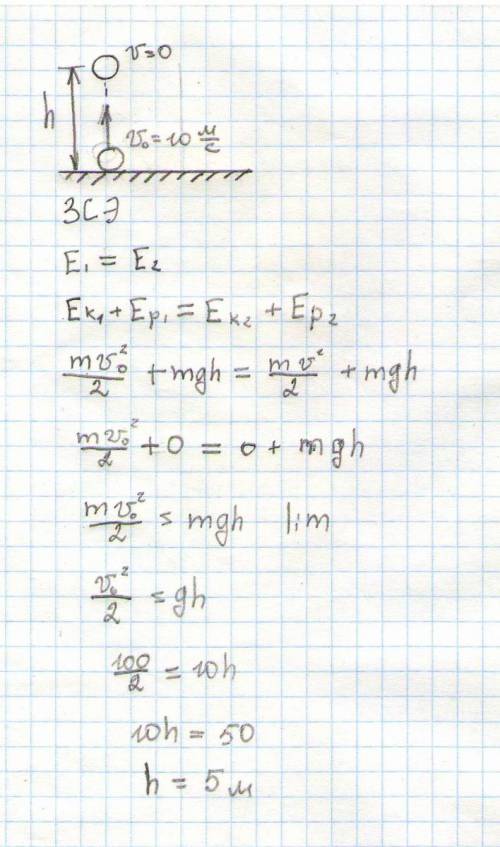 v=0
h
v₀=10 м/с
ЗСЭ
E₁ = E₂
Eк₁ + Ep₁ = Eк₂ + Ep₂
mv₀²/2 + mgh = mv²/2 + mgh
mv₀²/2 + 0 = 0 + mgh
mv₀²/2 = mgh |:m
v₀²/2 = gh
100/2 = 10h
10h = 50
h = 5м